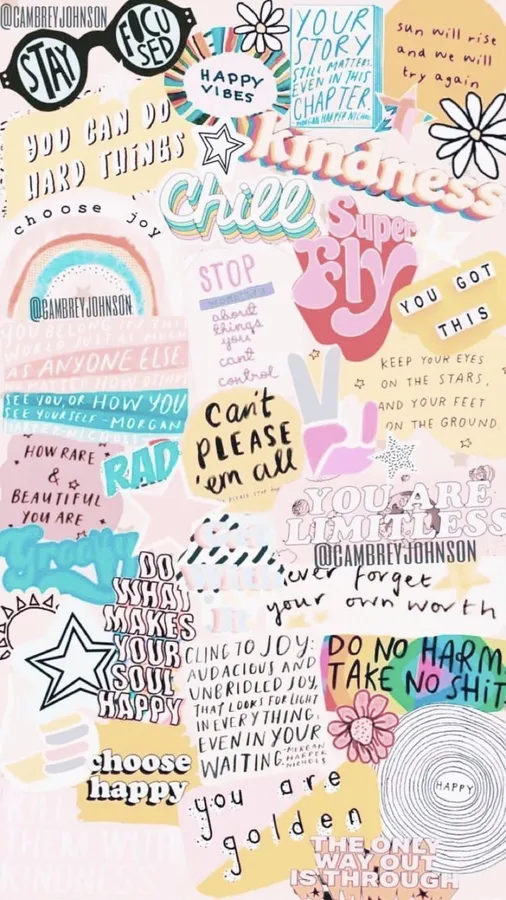 @CAMBREYJOHNSON
STAY
FOCU
SED
HAPPY
VIBES
YOUR
STORY
STILL MATTERS,
EVEN IN THIS
CHAPTER.
MORGAN HARPER NICHOLS
sun will rise
and we will
try again
YOU CAN DO
HARD THINGS
kindness
Chill
choose joy
Super
Fly
@CAMBREYJOHNSON
STOP
about
things
you
can't
control
YOU GOT
THIS
YOU BELONG IN THIS
WORLD JUST AS MUCH
AS ANYONE ELSE.
NO MATTER HOW OTHERS
SEE YOU, OR HOW YOU
SEE YOURSELF -MORGAN
HARPER-NICHOLS
KEEP YOUR EYES
ON THE STARS,
AND YOUR FEET
ON THE GROUND.
can't
PLEASE
'em all
HOW RARE
&
BEAUTIFUL
YOU ARE
RAD
YOU ARE
LIMITLESS
@CAMBREYJOHNSON
Groovy
ever forget
your own worth
DO
WHAT
MAKES
YOUR
SOUL
HAPPY
CLING TO JOY:
AUDACIOUS AND
UNBRIDLED JOY,
THAT LOOKS FOR LIGHT
IN EVERYTHING,
EVEN IN YOUR
WAITING. -MORGAN
HARPER
NICHOLS
DO NO HARM
TAKE NO SHIT
choose
happy
HAPPY
you are
golden
THE ONLY
WAY OUT
IS THROUGH
KINDNESS